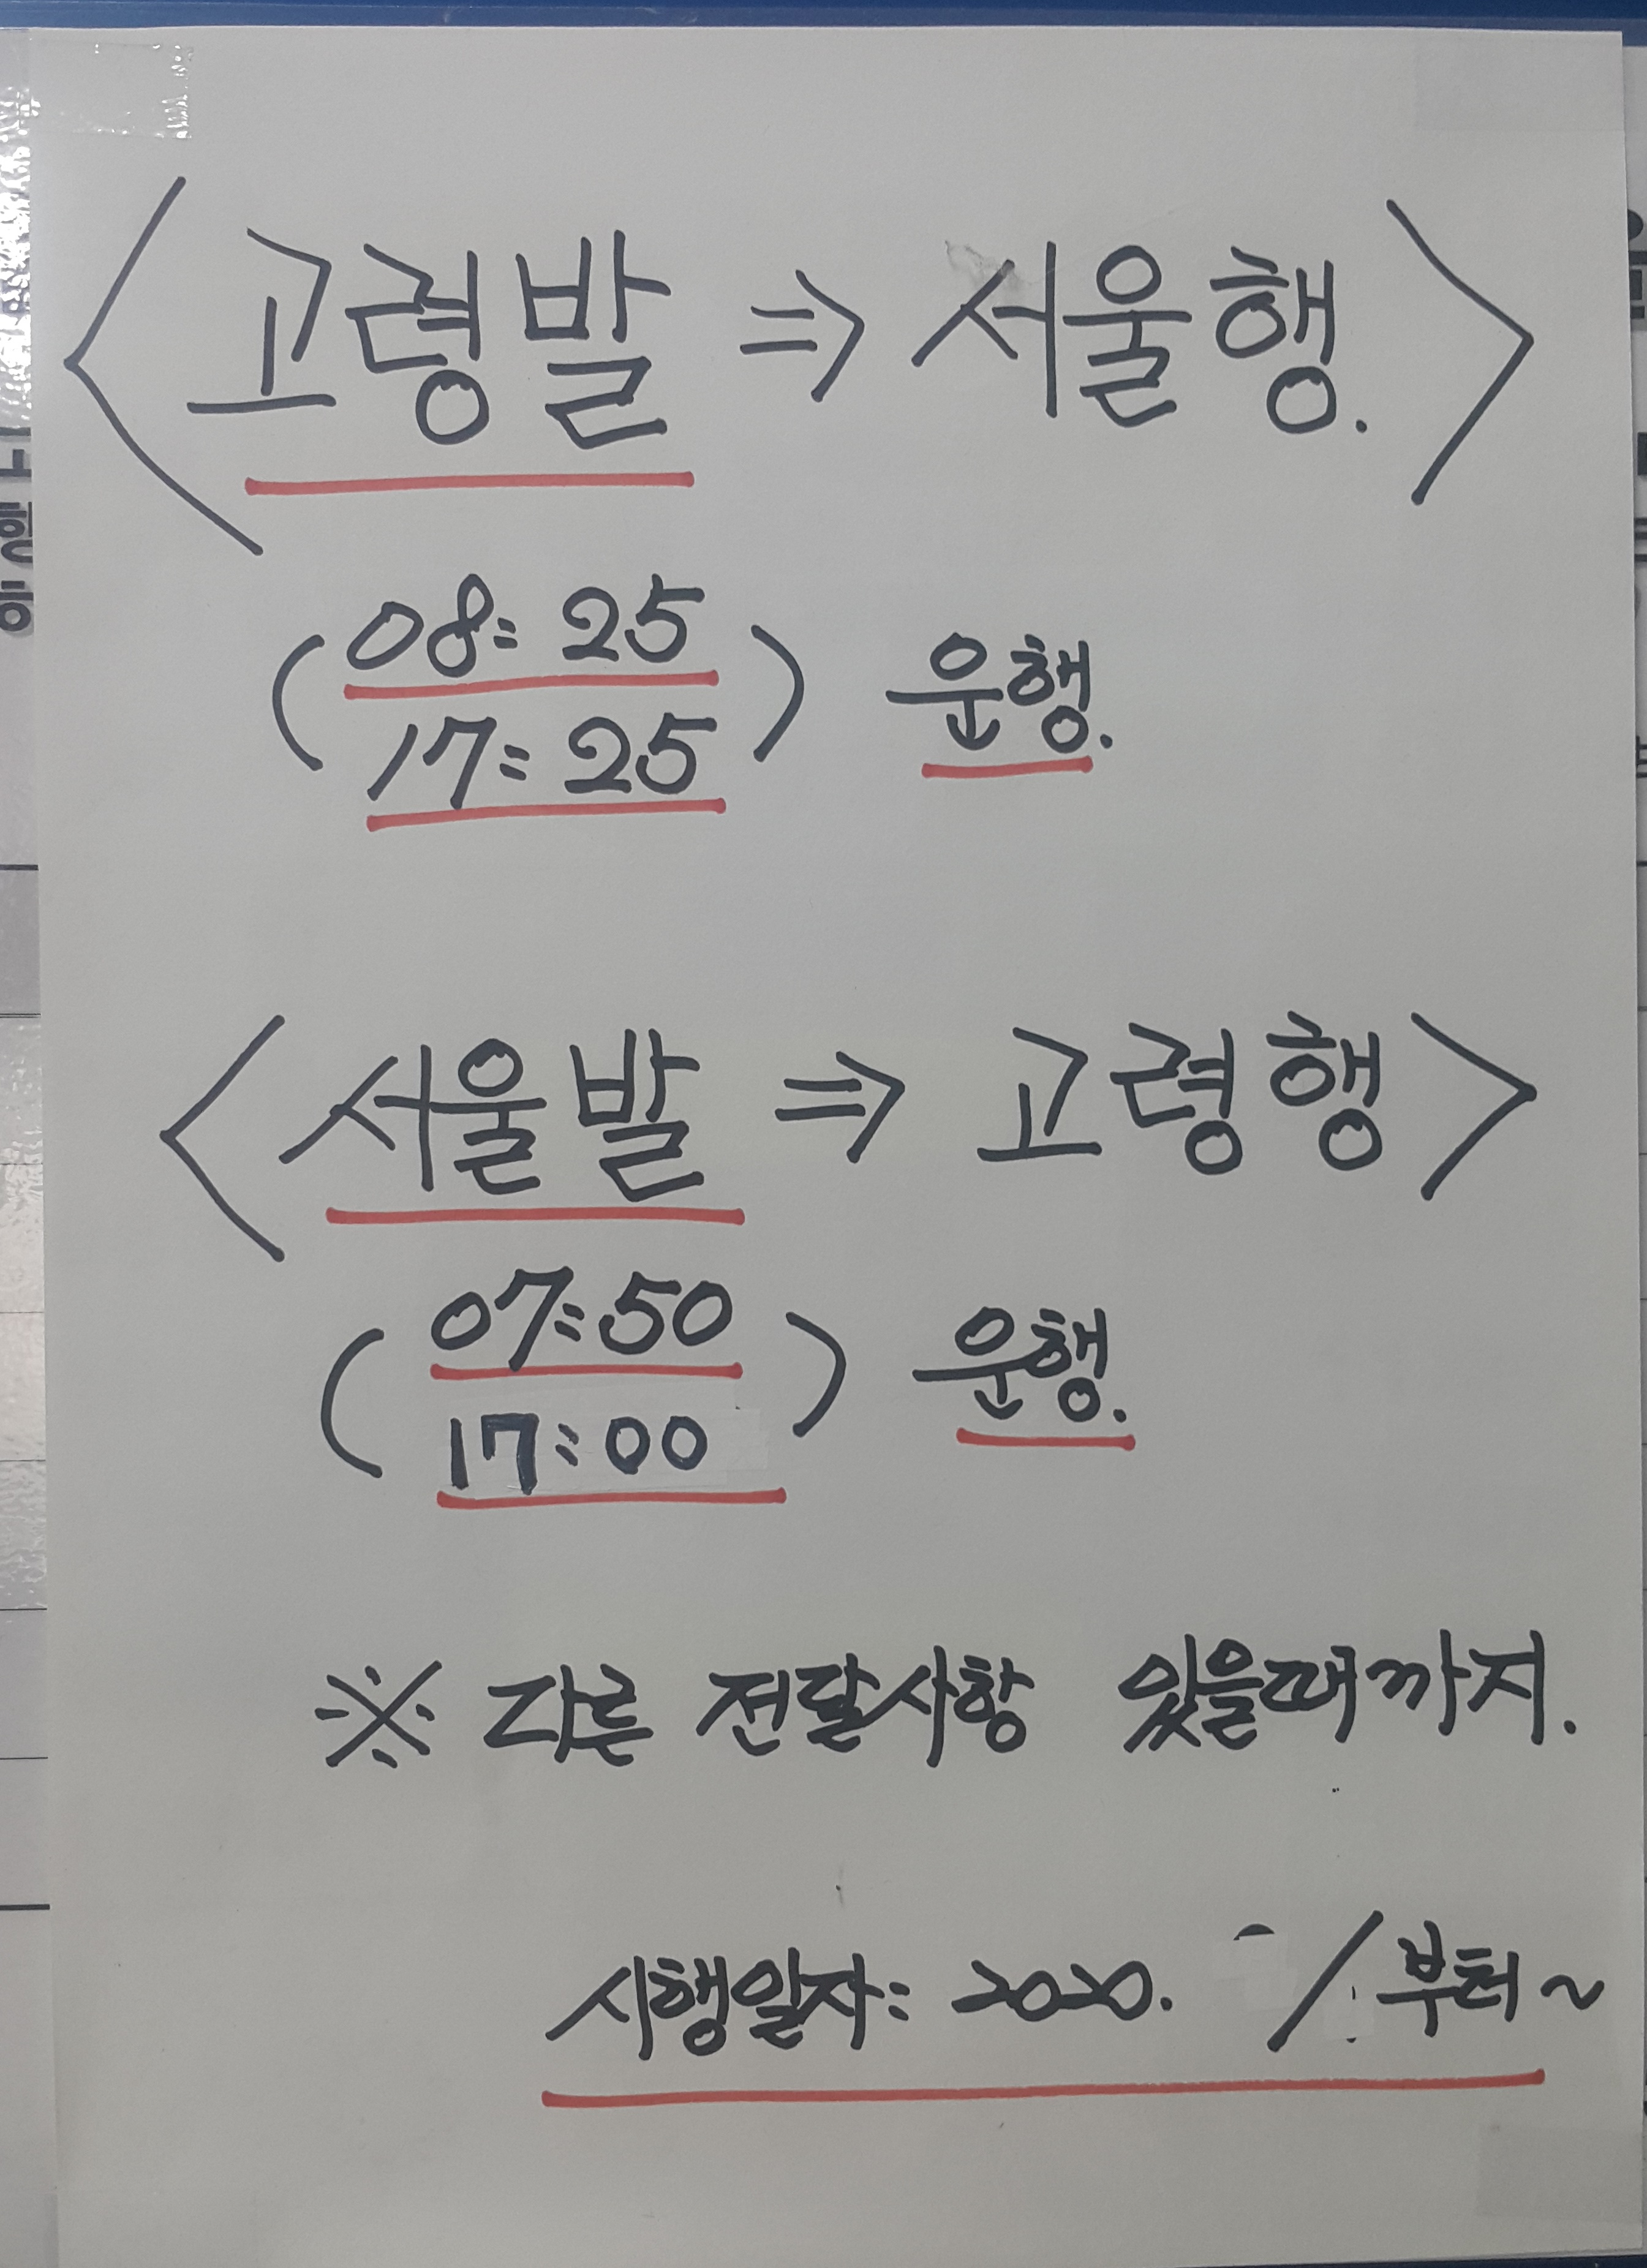 <고령발 ⇒ 서울행.>
(08:25
17:25) 운행.
<서울발 ⇒ 고령행>
(07:50
17:00) 운행.
※ 다른 전달사항 있을때까지.
시행일자: 2020. / 부터~